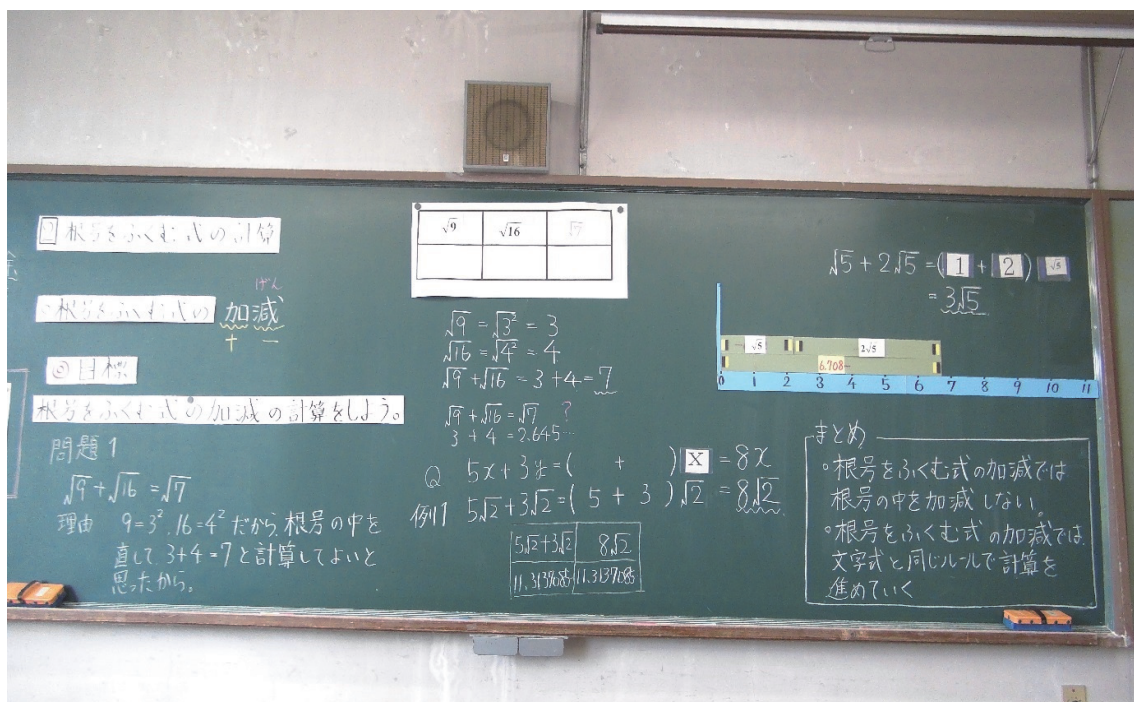 2 根号をふくむ式の計算
○根号をふくむ式の 加減
げん
+ −
◎目標
根号をふくむ式の加減の計算をしよう。
問題1
√9+√16=√7
理由 9=3². 16=4² だから、根号の中を
直して、3+4=7と計算してよいと
思ったから。
√9 √16 √7
√9=√3²=3
√16=√4²=4
√9+√16=3+4=7
√9+√16=√7 ?
3+4=2.645…
Q 5x+3x=( + ) X =8x
例1 5√2+3√2=( 5 + 3 )√2 =8√2
5√2+3√2 8√2
11.3137085 11.3137085
√5+2√5=( 1 + 2 ) √5
=3√5
√5 2√5
6.708…
0 1 2 3 4 5 6 7 8 9 10 11
まとめ
○根号をふくむ式の加減では
根号の中を加減しない。
○根号をふくむ式の加減では、
文字式と同じルールで計算を
進めていく